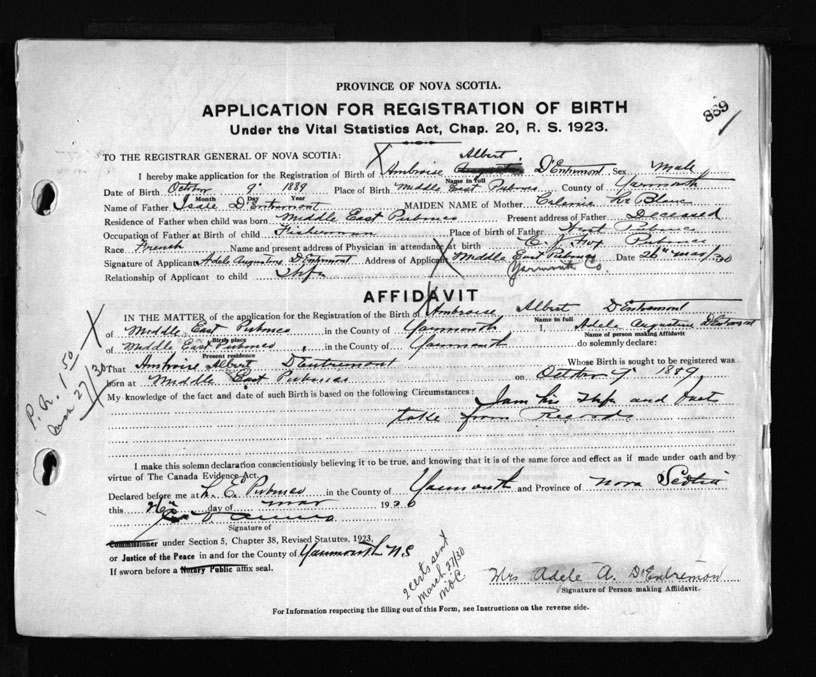 PROVINCE OF NOVA SCOTIA.
APPLICATION FOR REGISTRATION OF BIRTH
889
Under the Vital Statistics Act, Chap. 20, R. S. 1923.
TO THE REGISTRAR GENERAL OF NOVA SCOTIA:
Albert
I hereby make application for the Registration of Birth of Ambroise D'Entremont Sex Male
Name in full
Date of Birth October 9" 1889 Place of Birth Middle East Pubnico County of Yarmouth
Month Day Year
Name of Father D'Entremont MAIDEN NAME of Mother Le Blanc
Residence of Father when child was born Middle East Pubnico Present address of Father Deceased
Occupation of Father at Birth of child Fisherman Place of birth of Father West Pubnico
Race French Name and present address of Physician in attendance at birth Fox Pubnico
Signature of Applicant Adele Augustine D'Entremont Address of Applicant Middle East Pubnico Date 26" Mar/30
Yarmouth Co.
Relationship of Applicant to child
AFFIDAVIT
IN THE MATTER of the application for the Registration of the Birth of Ambroise Albert D'Entremont
Name in full
of Middle East Pubnico in the County of Yarmouth I, Adele Augustine D'Entremont
Birth place
Name of person making Affidavit
of Middle East Pubnico, in the County of Yarmouth do solemnly declare:
Present residence
That Ambroise Albert D'Entremont Whose Birth is sought to be registered was
born at Middle East Pubnico on October 9" 1889
My knowledge of the fact and date of such Birth is based on the following Circumstances: I am his and
from Records
P.N. 1.50
Mar 27/30
I make this solemn declaration conscientiously believing it to be true, and knowing that it is of the same force and effect as if made under oath and by
virtue of The Canada Evidence Act.
Declared before me at E. Pubnico in the County of Yarmouth and Province of Nova Scotia
this 26" day of Mar 1930
Signature of
Commissioner under Section 5, Chapter 38, Revised Statutes, 1923,
or Justice of the Peace in and for the County of Yarmouth N.S.
If sworn before a Notary Public affix seal.
2 certs sent
March 27/30
Mrs Adele A. D'Entremont
Signature of Person making Affidavit.
For Information respecting the filling out of this Form, see Instructions on the reverse side.